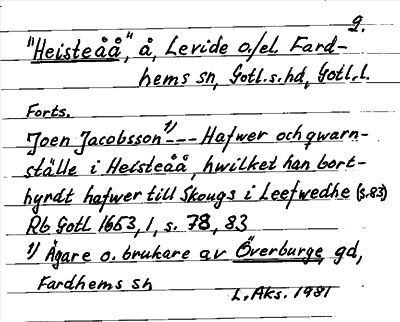 9.
"Heisteåå", å, Levide o/el. Fard-
hems sn, Gotl. s. hd, Gotl. l.
Forts.
Joen Jacobsson 1) --- Hafwer och qwarn-
ställe i Heisteåå, hwilket han bort-
hyrdt hafwer till Skougs i Leefwedhe (s. 83)
Rb Gotl 1653, 1, s. 78, 83
1) Ägare o. brukare av Överburge, gd,
Fardhems sn
L. Aks. 1981